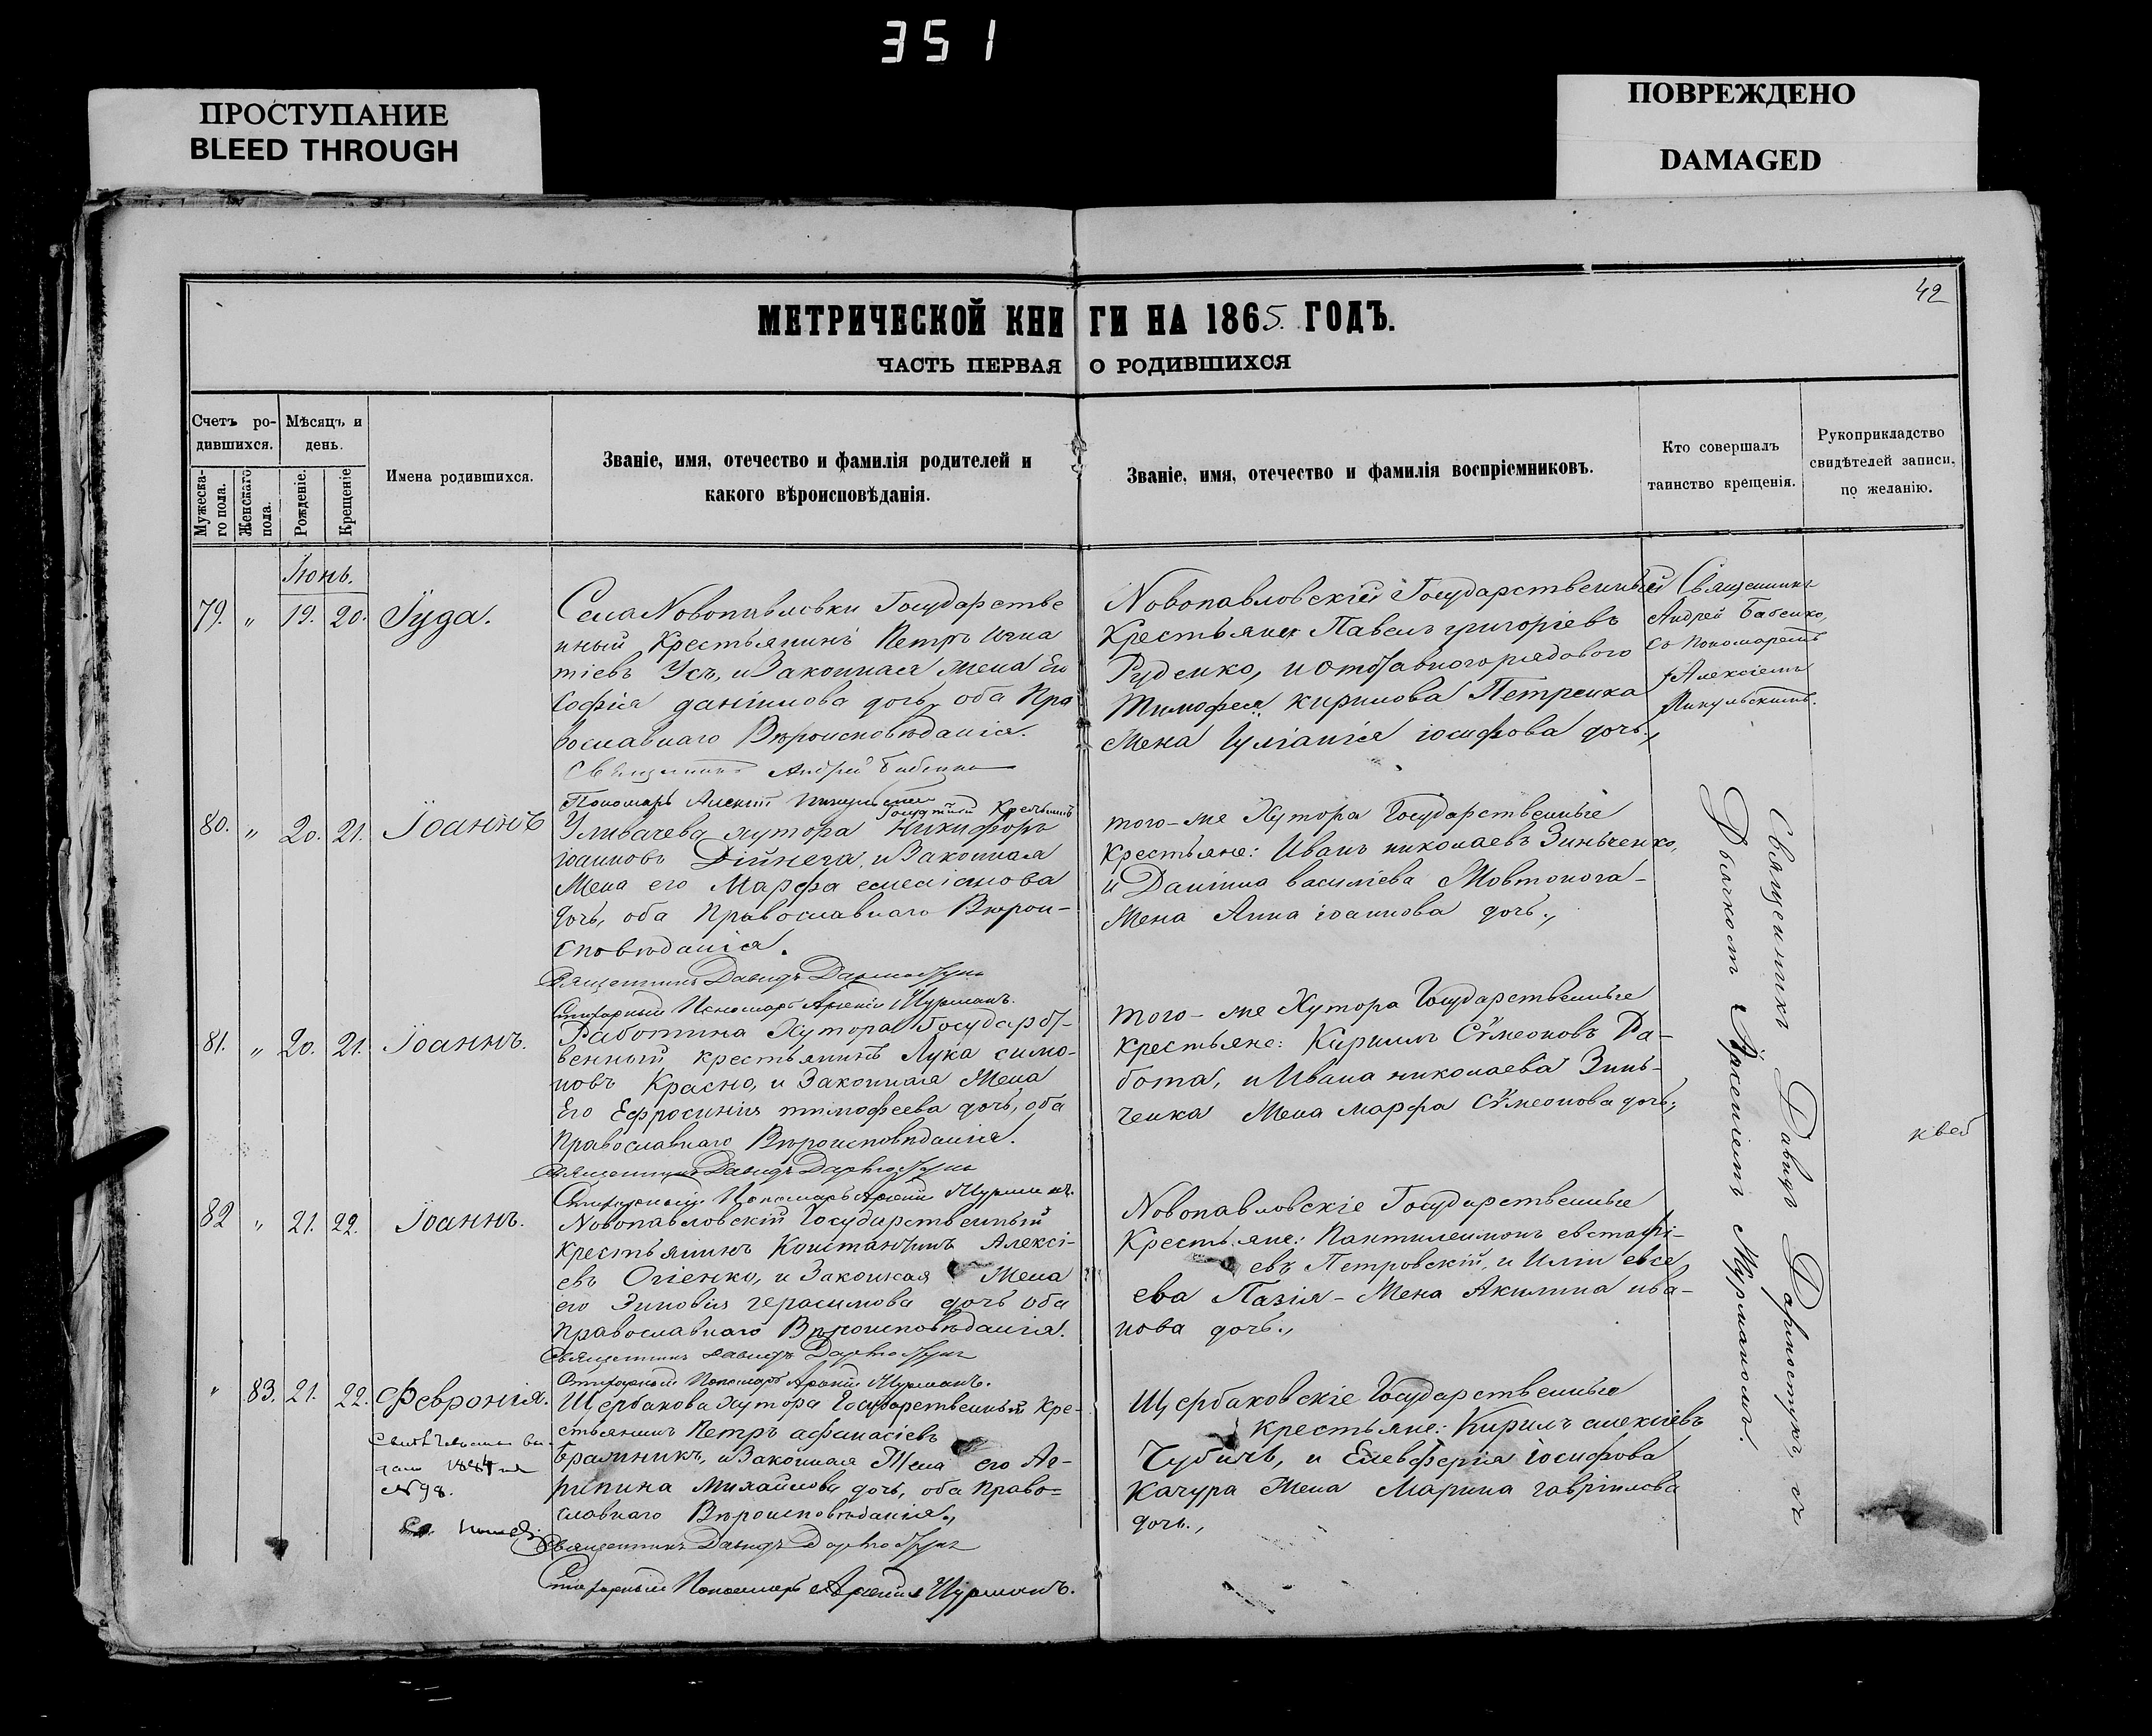 351
ПРОСТУПАНИЕ
BLEED THROUGH
ПОВРЕЖДЕНО
DAMAGED
42
МЕТРИЧЕСКОЙ КНИГИ НА 1865. ГОДЪ.
ЧАСТЬ ПЕРВАЯ О РОДИВШИХСЯ
Счетъ ро-
дившихся.
Мужеска-
го пола.
Женскаго
пола.
Мѣсяцъ и
день.
Рожденіе.
Крещеніе
Имена родившихся.
Званіе, имя, отечество и фамилія родителей и
какого вѣроисповѣданія.
Званіе, имя, отечество и фамилія воспріемниковъ.
Кто совершалъ
таинство крещенія.
Рукоприкладство
свидѣтелей записи,
по желанію.
Іюнь.
79. " 19. 20. Іуда.
Села Новопавловки Государстве
нный Крестьянинъ Петръ Игна
тіевъ Усъ, и Законная жена Его
Софія даніилова дочь, оба Пра
вославнаго Вѣроисповѣданія.
Священникъ Андрей Бабенко
Пономарь Алексій
Новопавловскій Государственный
Крестьянинъ Павелъ григоріевъ
Руденко, и отставного рядового
Тимофея кирилова Петренка
жена Іуліанія іосифова дочь.,
Священникъ
Андрей Бабенко,
съ пономаремъ
Алексіемъ
80. " 20. 21. Іоаннъ
Государственный Крестьянинъ
Уливачева хутора Никифоръ
іоанновъ Дійнега, и Законная
жена его Марфа
дочь, оба Православнаго Вѣрои-
сповѣданія.
Священникъ Давидъ
Пономарь Арсеній Мурманъ.
того-же Хутора Государственные
Крестьяне: Иванъ николаевъ Зинченко,
и Даніила василіева Мовтонога-
жена Анна іоаннова дочь.,
81. " 20. 21. Іоаннъ.
Работина Хутора Государст-
венный крестьянинъ Лука симо-
новъ Красно, и Законная жена
Его Ефросинія тимофеева дочь, оба
Православнаго Вѣроисповѣданія.
Священникъ Давидъ
Пономарь Арсеній Мурманъ.
того-же Хутора Государственные
крестьяне: Кирилъ Сѵмеоновъ Ра-
бота, и Ивана николаева Зинь-
ченка жена марфа Сѵмеонова дочь.,
82 " 21. 22. Іоаннъ.
Новопавловскій Государственный
крестьянинъ Константинъ Алексі-
евъ Огіенко, и Законная жена
его Зиновія герасимова дочь оба
Православнаго Вѣроисповѣданія.
Священникъ Давидъ
Пономарь Арсеній Мурманъ.
Новопавловскіе Государственные
Крестьяне: Пантилеимонъ евстафі-
евъ Петровскій, и Иліи евсе
ева Пазія - жена Акилина ива-
нова дочь.,
" 83. 21. 22. Февронія.
Свидѣтельство вы-
дано 1884
№ 98.
Щербакова хутора Государственный Кре-
стьянинъ Петръ афанасіевъ
Бражникъ, и Законная Жена его Аг-
рипина михайлова дочь, оба право=
славнаго Вѣроисповѣданія.,
Священникъ Давидъ
Пономарь Арсеній Мурманъ.
Щербаковскіе Государственные
крестьяне: Кирилъ алексіевъ
Чубичъ, и Елевферія іосифова
Качура жена Марина гавріилова
дочь.,
Священникъ Давидъ съ
Дьячкомъ Арсеніемъ Мурманомъ.